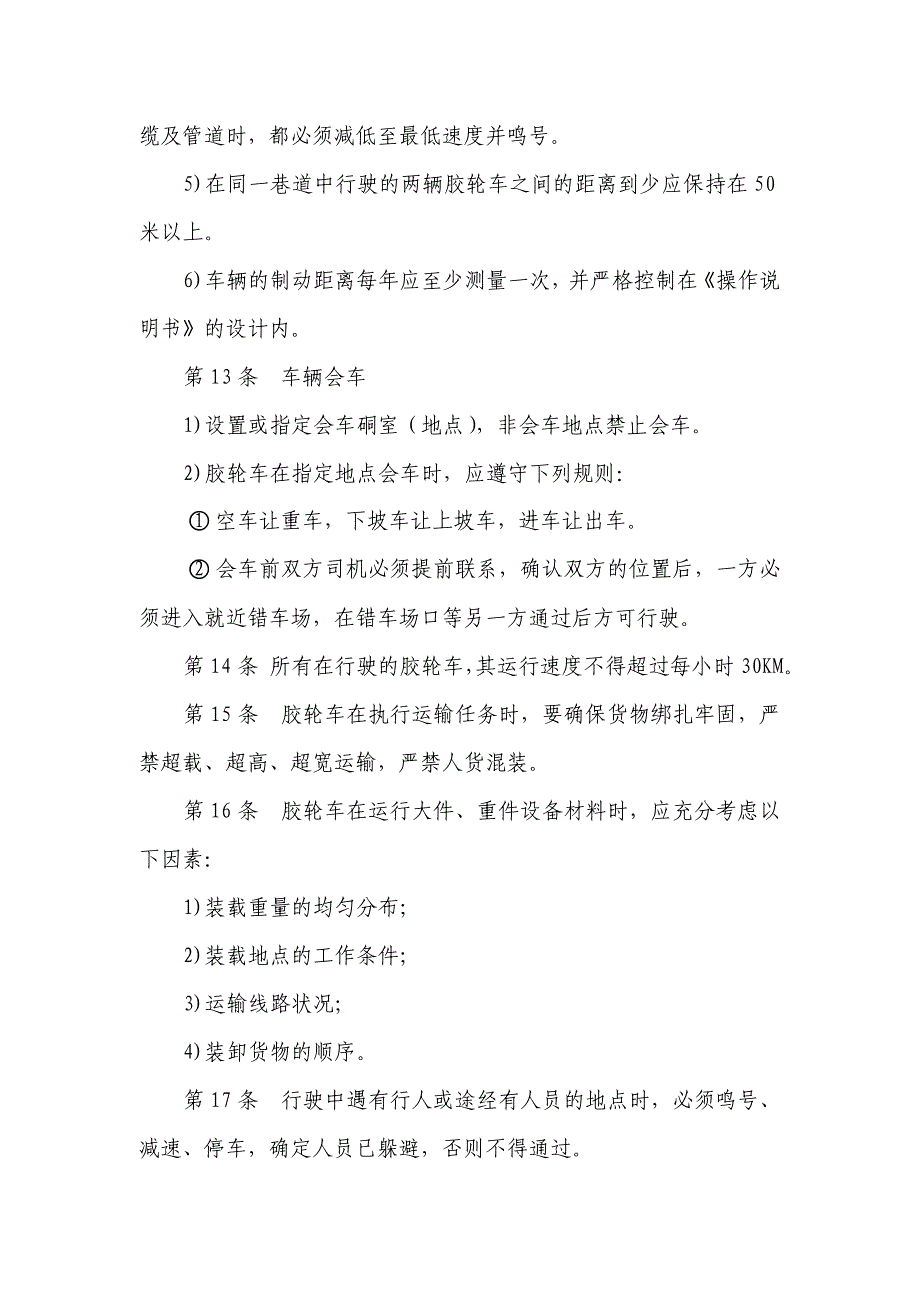 缆及管道时，都必须减低至最低速度并鸣号。
5)在同一巷道中行驶的两辆胶轮车之间的距离到少应保持在 50
米以上。
6)车辆的制动距离每年应至少测量一次，并严格控制在《操作说
明书》的设计内。
第 13 条　车辆会车
1)设置或指定会车硐室（地点），非会车地点禁止会车。
2)胶轮车在指定地点会车时，应遵守下列规则：
① 空车让重车，下坡车让上坡车，进车让出车。
② 会车前双方司机必须提前联系，确认双方的位置后，一方必
须进入就近错车场，在错车场口等另一方通过后方可行驶。
第 14 条 所有在行驶的胶轮车，其运行速度不得超过每小时 30KM。
第 15 条　胶轮车在执行运输任务时，要确保货物绑扎牢固，严
禁超载、超高、超宽运输，严禁人货混装。
第 16 条　胶轮车在运行大件、重件设备材料时，应充分考虑以
下因素：
1)装载重量的均匀分布；
2)装载地点的工作条件；
3)运输线路状况；
4)装卸货物的顺序。
第 17 条　行驶中遇有行人或途经有人员的地点时，必须鸣号、
减速、停车，确定人员已躲避，否则不得通过。